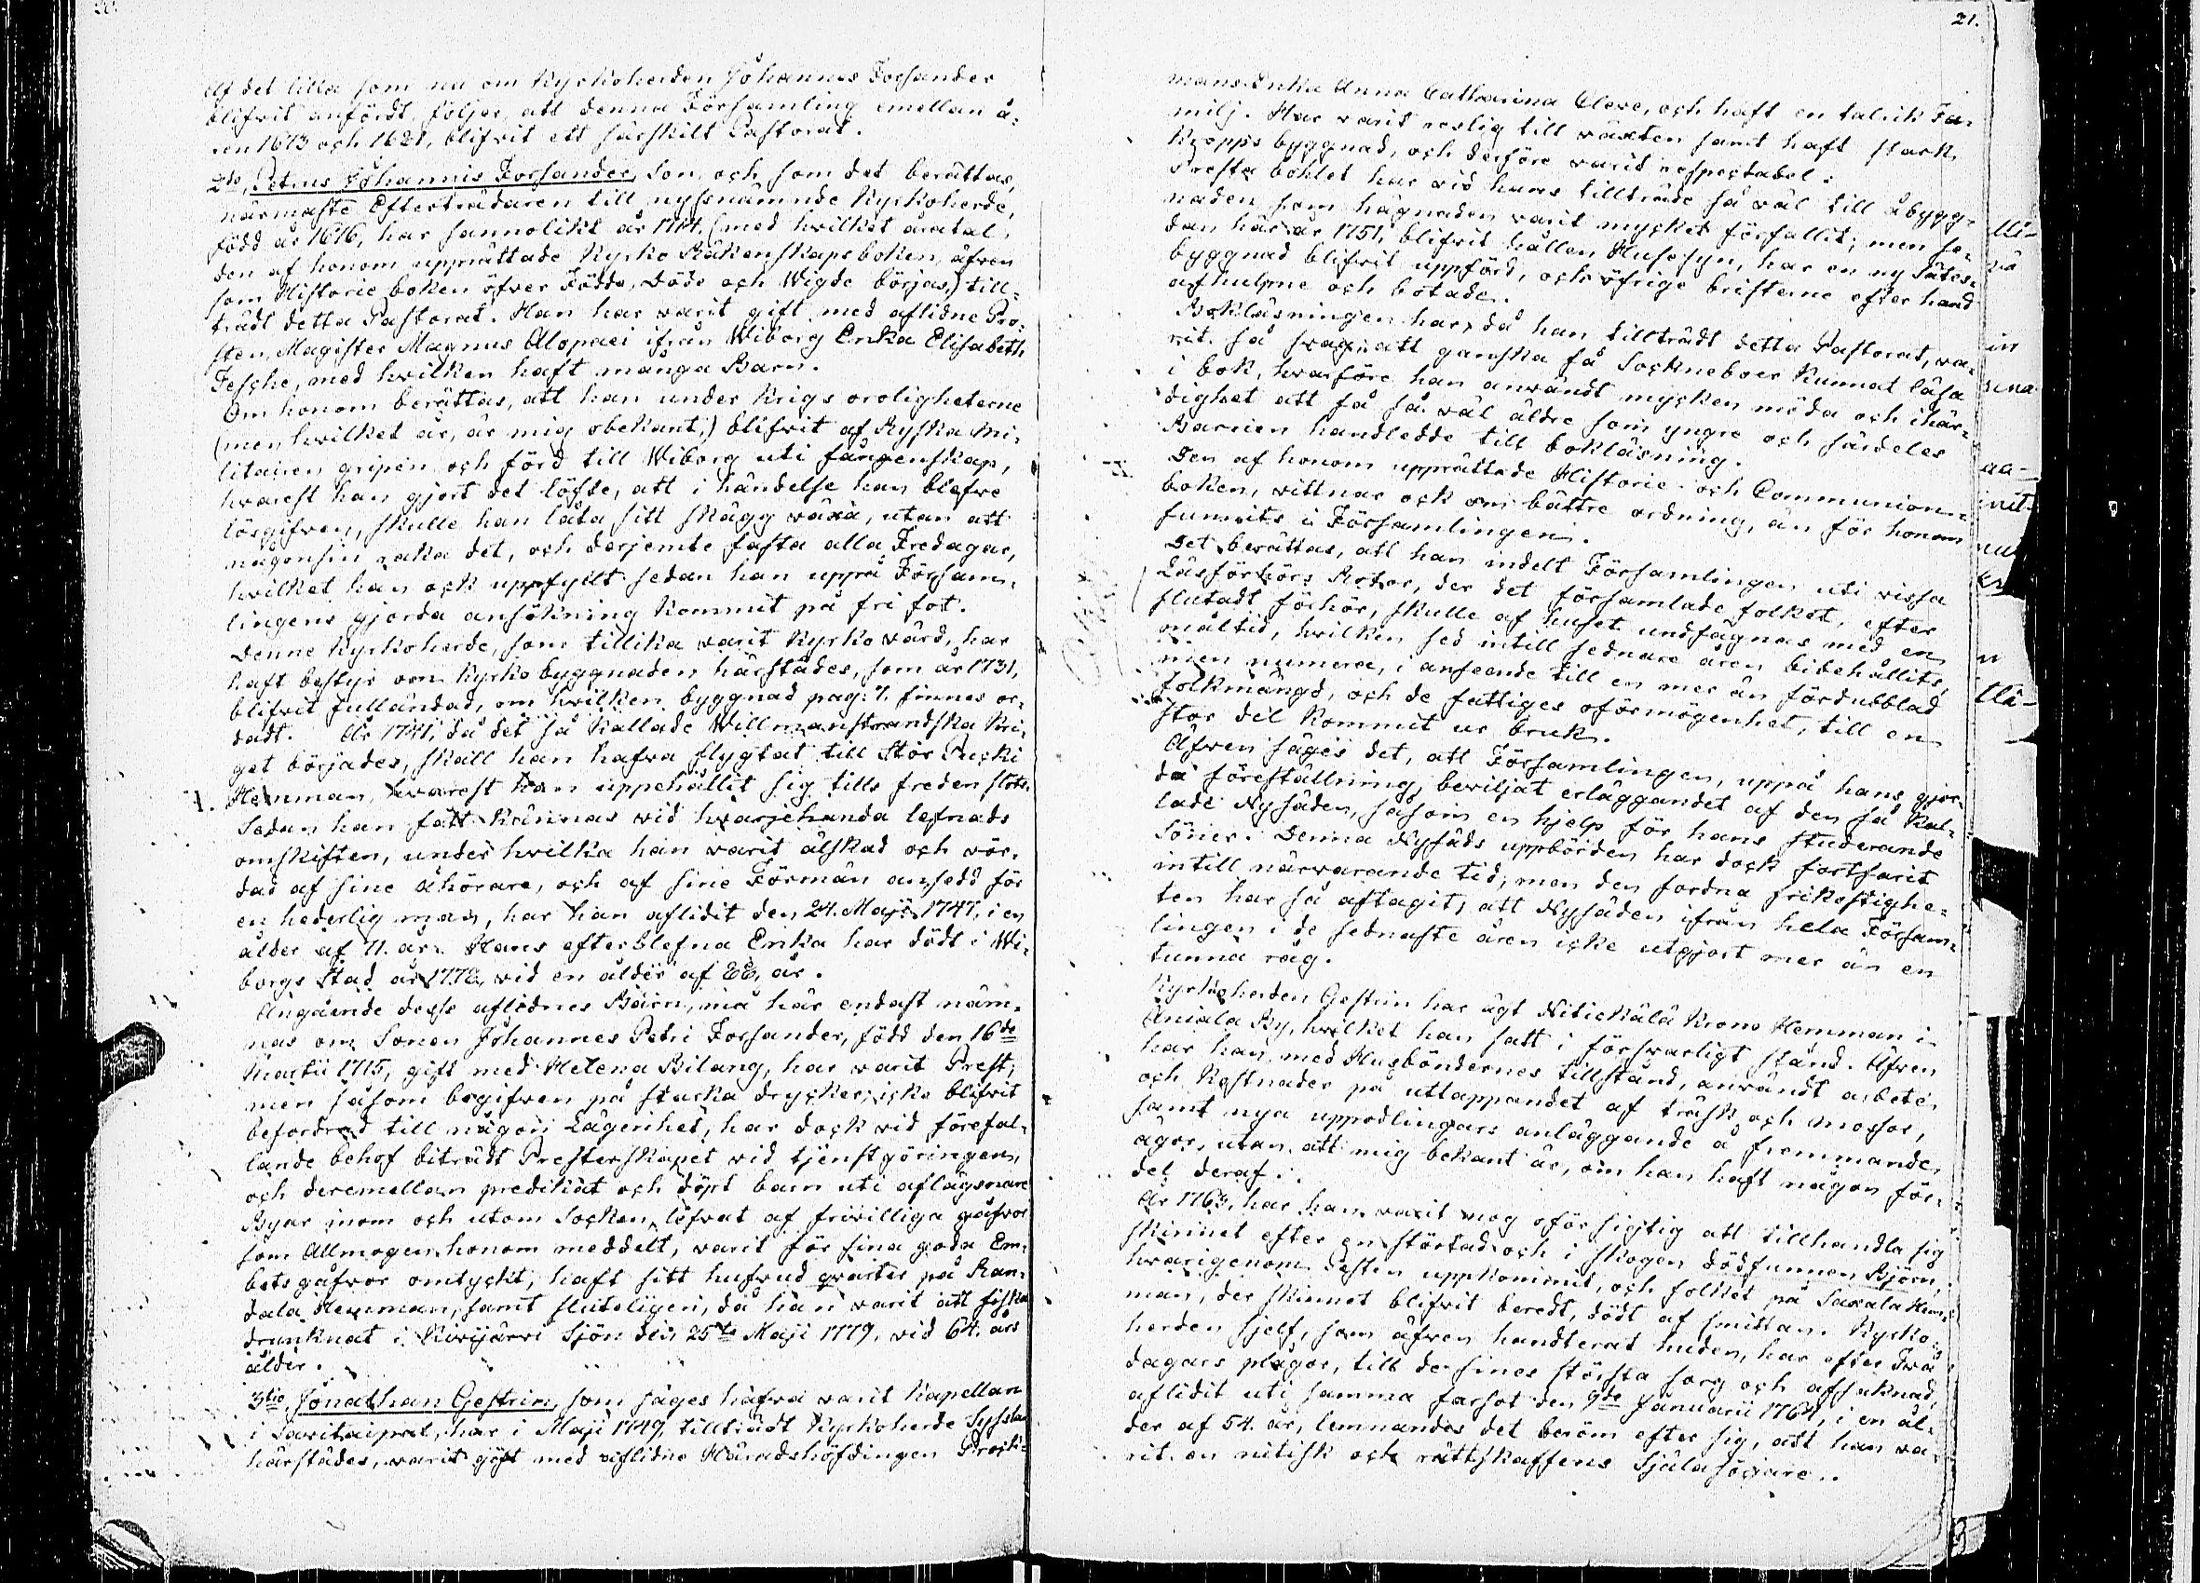 20.
Af det lilla som nu om Kyrkoherden Johannes Forsander
blifvit anfördt, följer, att denna Församling emellan å-
ren 1613 och 1621, blifvit ett särskilt Pastorat.
2do, Petrus Johannis Forsander, Son, och som det berättas,
närmaste Efterträdaren till nyssnämnde Kyrkoherde,
född år 1676, har sannolikt år 1714, (med hvilket åratal,
den af honom upprättade Kyrko Räkenskaps boken, äfven
som Historie boken öfver Födde, Döde och Wigde börjas,) till-
trädt detta Pastorat. Han har varit gift med aflidne Pro-
sten, Magister Magnus Alopaei ifrån Wiborg Enka Elisabeth
Fesche, med hvilken haft många Barn.
Om honom berättas, att han under Krigs oroligheterne
(men hvilket år, är mig obekant,) blifvit af Ryska Mi-
litairen gripen och förd till Wiborg uti fångenskap,
hvarest han gjort det löfte, att i händelse han blefve
lösgifven, skulle han låta sitt skägg växa, utan att
någonsin raka det, och derjemte fasta alla Fredagar,
hvilket han ock uppfyllt sedan han uppå Försam-
lingens gjorda ansökning kommit på fri fot.
Denne Kyrkoherde, som tillika varit Kyrko värd, har
haft bestyr om Kyrko byggnaden härstädes, som år 1731,
blifvit fulländad, om hvilken byggnad pag: 7. finnes or-
dadt. År 1741, då det så kallade Willmanstrandska Kri-
get börjades, skall han hafva flygtat till Stor Pucki
Hemman, hvarest han uppehållit sig tills freden slöts.
Sedan han fått Kännas vid hvarjehanda lefnads
omskiften, under hvilka han varit älskad och vör-
dad af sine åhörare, och af sine Förmän ansedd för
en hederlig man, har han aflidit den 24. Maji 1747, i en
ålder af 71. år. Hans efterblefna Enka har dödt i Wi-
borgs Stad år 1772, vid en ålder af 88, år.
Angående desse aflidnes Barn, må här endast näm-
nas om Sonen Johannes Petri Forsander, född den 16de
Martii 1715, gift med Helena Bilang, har varit Prest,
men såsom begifven på starka drycker, icke blifvit
befordrad till någon Lägenhet, har dock vid förefal-
lande behof biträdt Presterskapet vid tjenstgöringen,
och deremellan predikat och döpt barn uti aflägsnare
Byar inom och utom Socken, lefvat af frivilliga gåfvor
som Allmogen honom meddelt, varit för sina goda Em-
bets gåfvor omtyckt, haft sitt hufvud qvarter på Kan-
dala Hemman, samt sluteligen, då han varit att fiska
drunknat i Kivijärvi Sjön den 25te Maji 1779, vid 64. års
ålder.
3tio, Jonathan Gestrin, som säges hafva varit Kapellan
i Savitaipal, har i Maji 1749, tillträdt Kyrkoherde Sysslan
härstädes, varit gift med aflidne Häradshöfdingen Prock-
21.
mans Enka Anna Catharina Cleve, och haft en talrik Fa-
milj. Har varit reslig till växten samt haft stark
Kropps byggnad, och derföre varit respectabel.
Preste bohlet har vid hans tillträde så väl till åbygg-
naden som hägnaden varit mycket förfallit; men se-
dan här år 1751, blifvit hållen Husesyn, har en ny Sätes-
byggnad blifvit uppförd, och öfrige bristerne efter hand
afhulpne och botade.
Bokläsningen har, då han tillträdt detta Pastorat, va-
rit så svag, att ganska få Sockneboer Kunnat läsa
i bok, hvarföre han användt mycken möda och ihär-
dighet att få så väl äldre som yngre och särdeles
Barnen handledde till bokläsning.
Den af honom upprättade Historie- och Communion-
boken, vittnar ock om bättre ordning, än för honom
funnits i Församlingen.
Det berättas, att han indelt Församlingen uti vissa
Läsförhörs Rotar, der det församlade folket, efter
slutadt förhör, skulle af huset undfägnas med en
måltid, hvilken sed intill sednare åren bibehållits,
men numera, i anseende till en mer än fördubblad
folkmängd, och de fattiges oförmögenhet, till en
stor del kommit ur bruk.
Äfven säges det, att Församlingen, uppå hans gjor-
da föreställning, beviljat erläggandet af den så kal-
lade Nysäden, såsom en hjelp för hans studerande
Söner. Denna Nysäds uppbörden har dock fortfarit
intill närvarande tid, men den fordna frikostighe-
ten har så aftagit, att Nysäden ifrån hela Försam-
lingen i de sednaste åren icke utgjort mer än en
tunna råg.
Kyrkoherden Gestrin har ägt Nitickälä Krono Hemman i
Äniala By, hvilket han satt i försvarligt stånd. Äfven
har han med Husböndernes tillstånd, användt arbete
och Kostnader på uttappandet af träsk och mossor,
samt nya upprodlingars anläggande å fremmande
ägor, utan att mig bekant är, om han haft någon för-
del deraf.
År 1763, har han varit nog oförsigtig att tillhandla sig
skinnet efter en störtad och i skogen dödfunnen Björn,
hvarigenom pesten uppkommit, och folket på Saxala Hem-
man, der skinnet blifvit beredt, dödt af smittan. Kyrko-
herden sjelf, som äfven handterat huden, har efter Två
dagars plågor, till de sines största sorg och afsaknad,
aflidit uti samma farsot den 9de Januarii 1764, i en ål-
der af 54. år, lemnandes det beröm efter sig, att han va-
rit en nitisk och rättskaffens Själasörjare.